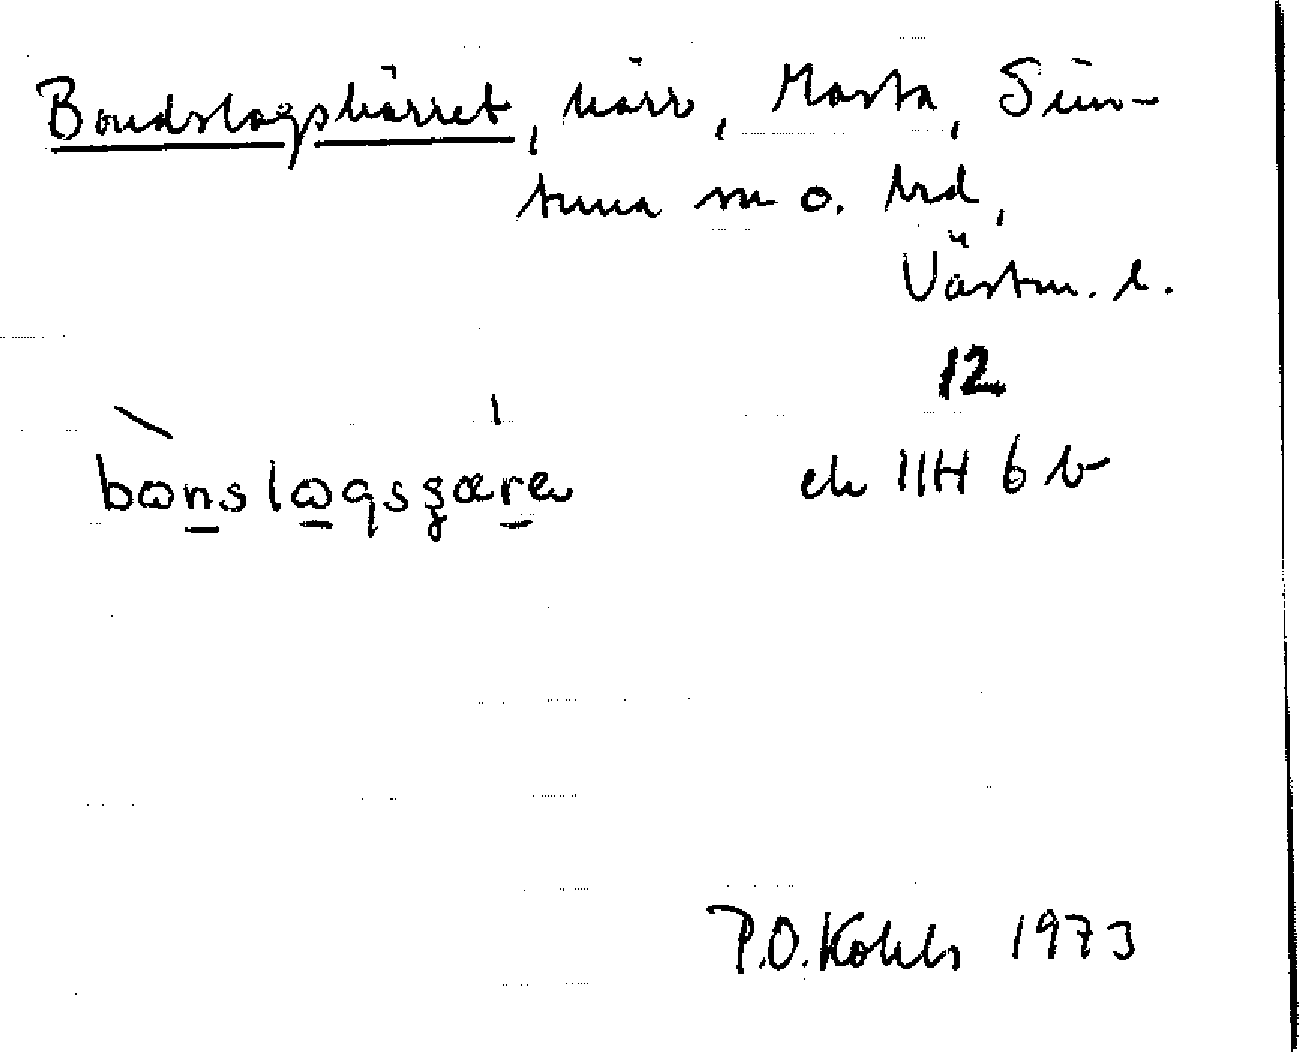 Bondslagskärret, kärr, Marsta, Sim-
tuna sn o. hrd,
Västm. l.
12
bònslagsʒære ek 11H 6 b
P.O. Kohls 1973